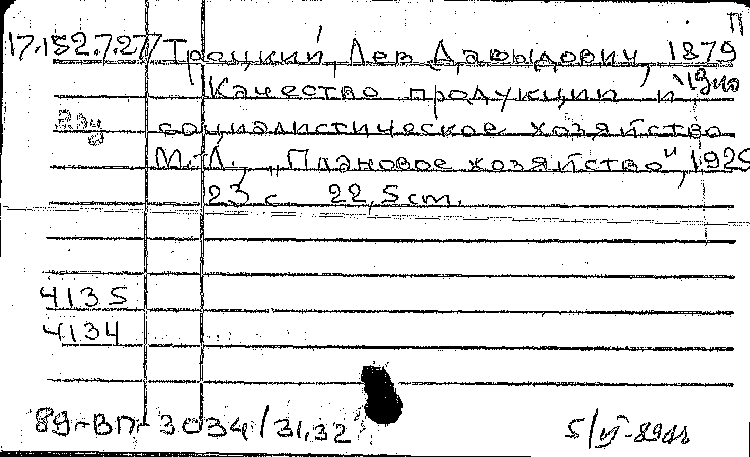 П
17.152.7.27 Троцкий, Лев Давыдович, 1879
Качество продукции и
социалистическое хозяйство
М.-Л., „Плановое хозяйство", 1925
23 с 22,5 cm.
4135
4134
89-ВП-3034/31,32